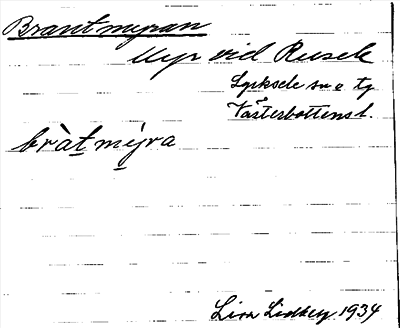 Brantmyran
Myr vid Rusek
Lycksele sn o tg
Västerbottens l.
bràtmýra
Lisa Lidberg 1934